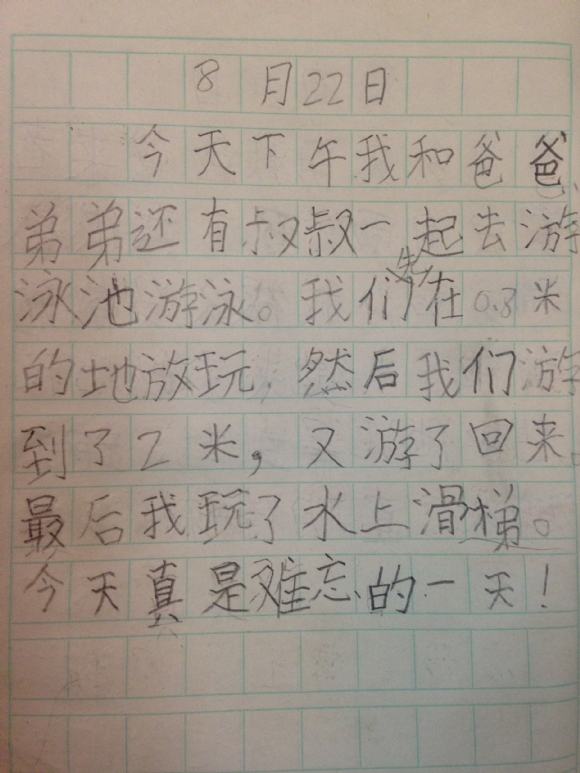 8月22日
今天下午我和爸爸、
弟弟还有叔叔一起去游
泳池游泳。我们先在0.8米
的地放玩，然后我们游
到了2米，又游了回来。
最后我玩了水上滑梯。
今天真是难忘的一天！